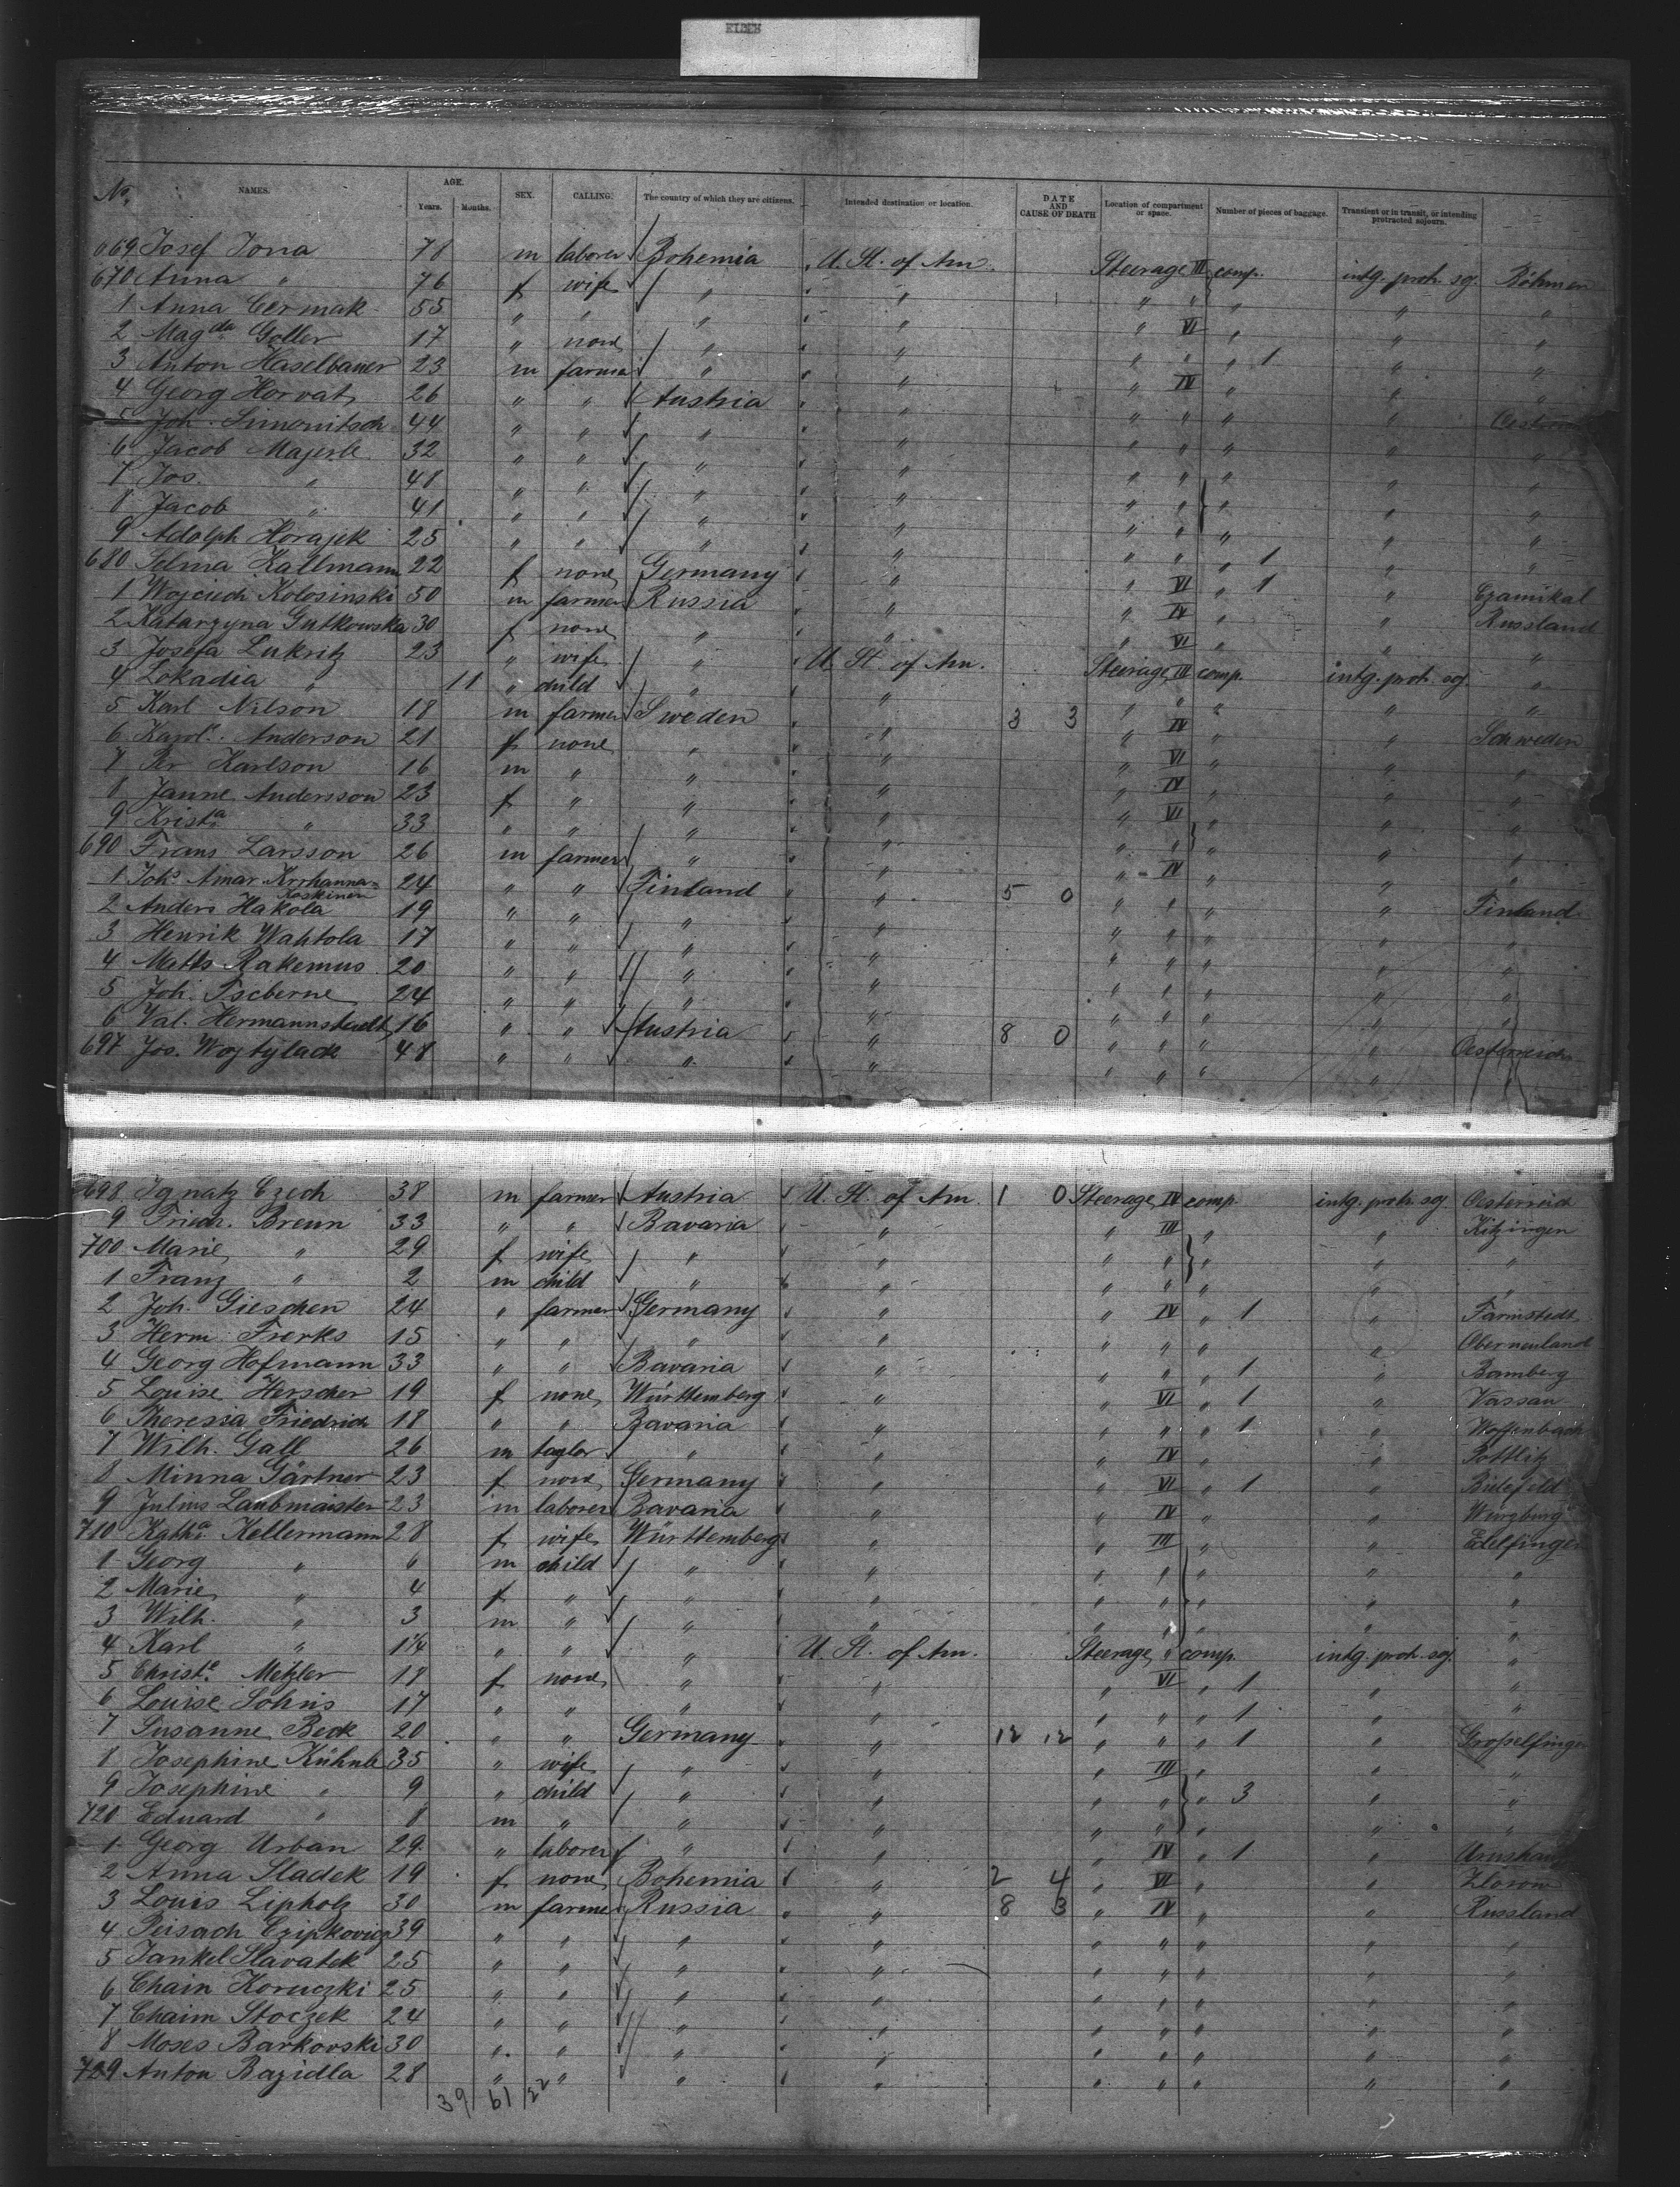 EIDER
No. NAMES. AGE. Years. Months. SEX. CALLING. The country of which they are citizens. Intended destination or location. DATE AND CAUSE OF DEATH Location of compartment or space. Number of pieces of baggage. Transient or in transit, or intending protracted sojourn.
669 Josef Jona 78 m laborer Bohemia U. St. of Am. Steerage III comp. intg. protr. soj. Böhmen
670 Anna " 76 f wife " " " " " " "
1 Anna Cermak 55 " " " " " VI " " "
2 Magda Goller 17 " none " " " " " 1 " "
3 Anton Haselbauer 23 m farmer " " " IV " " "
4 Georg Horvat 26 " " Austria " " " " " Oesterreich
5 Joh. Simonitsch 44 " " " " " " " " "
6 Jacob Majerle 32 " " " " " " " " "
7 Jos. " 48 " " " " " " " " "
8 Jacob " 41 " " " " " " " " "
9 Adolph Horajek 25 " " " " " " " 1 " "
680 Selma Kallmann 22 f none Germany " " VI " 1 " Czarnikal
1 Wojciech Kolosinski 50 m farmer Russia " " IV " " Russland
2 Katarzyna Gutkowska 30 f none " " " VI " " "
3 Josefa Lukritz 23 " wife " U. St. of Am. Steerage III comp. intg. protr. soj. "
4 Lokadia " 11 " child " " " " " " "
5 Karl Nilson 18 m farmer Sweden " 3 3 " IV " " Schweden
6 Karole. Anderson 21 f none " " " VI " " "
7 Per Karlson 16 m " " " " IV " " "
8 Janne Andersson 23 f " " " " VI " " "
9 Krista " 33 " " " " " " " " "
690 Frans Larsson 26 m farmer " " " IV " " "
1 Johs. Amar Krrhanna= Koskinen 24 " " Finland " 5 0 " " " " Finland
2 Anders Hakola 19 " " " " " " " " "
3 Henrik Wahtola 17 " " " " " " " " "
4 Matts Rakemus 20 " " " " " " " " "
5 Joh. Tscberne 24 " " " " " " " " "
6 Val. Hermannstadt 16 " " Austria " 8 0 " " " " Oesterreich
697 Jos. Wojtylack 48 " " " " " " " "
698 Ignatz Czech 38 m farmer Austria U. St. of Am. 1 0 Steerage IV comp. intg. protr. soj. Oesterreich
9 Friedr. Breun 33 " " Bavaria " " III " " Kitzingen
700 Marie " 29 f wife " " " " " " "
1 Franz " 2 m child " " " " " " "
2 Joh. Gieschen 24 " farmer Germany " " IV " 1 " Farmstedt
3 Herm. Frerks 15 " " " " " " " " Oberneuland
4 Georg Hofmann 33 " " Bavaria " " " " 1 " Bamberg
5 Louise Herscher 19 f none Württemberg " " VI " 1 " Vassan
6 Theresia Friedrich 18 " " Bavaria " " " " 1 " Woffenbach
7 Wilh. Gall 26 m taylor " " " IV " " Pottlitz
8 Minna Gärtner 23 f none Germany " " VI " 1 " Bielefeld
9 Julius Laubmaister 23 m laborer Bavaria " " IV " " Würzburg
710 Katha. Kellermann 28 f wife Württemberg " " III " " Edelfingen
1 Georg " 6 m child " " " " " " "
2 Marie " 4 f " " " " " " " "
3 Wilh. " 3 m " " " " " " " "
4 Karl " 1¼ " " " U. St. of Am. Steerage " comp. intg. protr. soj. "
5 Christe. Metzler 18 f none " " " VI " 1 " "
6 Louise Söhns 17 " " " " " " " 1 " "
7 Susanne Beck 20 " " Germany " 12 12 " " " 1 " Grosselfingen
8 Josephine Kühnle 35 " wife " " " III " " "
9 Josephine " 9 " child " " " " " 3 " "
720 Eduard " 8 m " " " " " " " "
1 Georg Urban 29 " laborer " " " IV " 1 "
2 Anna Sladek 19 f none Bohemia " 2 4 " VI " " Zlorow
3 Louis Lipholz 30 m farmer Russia " 8 3 " IV " " Russland
4 Peisach Czipkovicz 39 " " " " " " " " "
5 Jankel Slavatek 25 " " " " " " " " "
6 Chain Koruczki 25 " " " " " " " " "
7 Chaim Stoczek 24 " " " " " " " " "
8 Moses Barkovski 30 " " " " " " " " "
729 Anton Bazidla 28 " " " " " " " " "
39 61 22